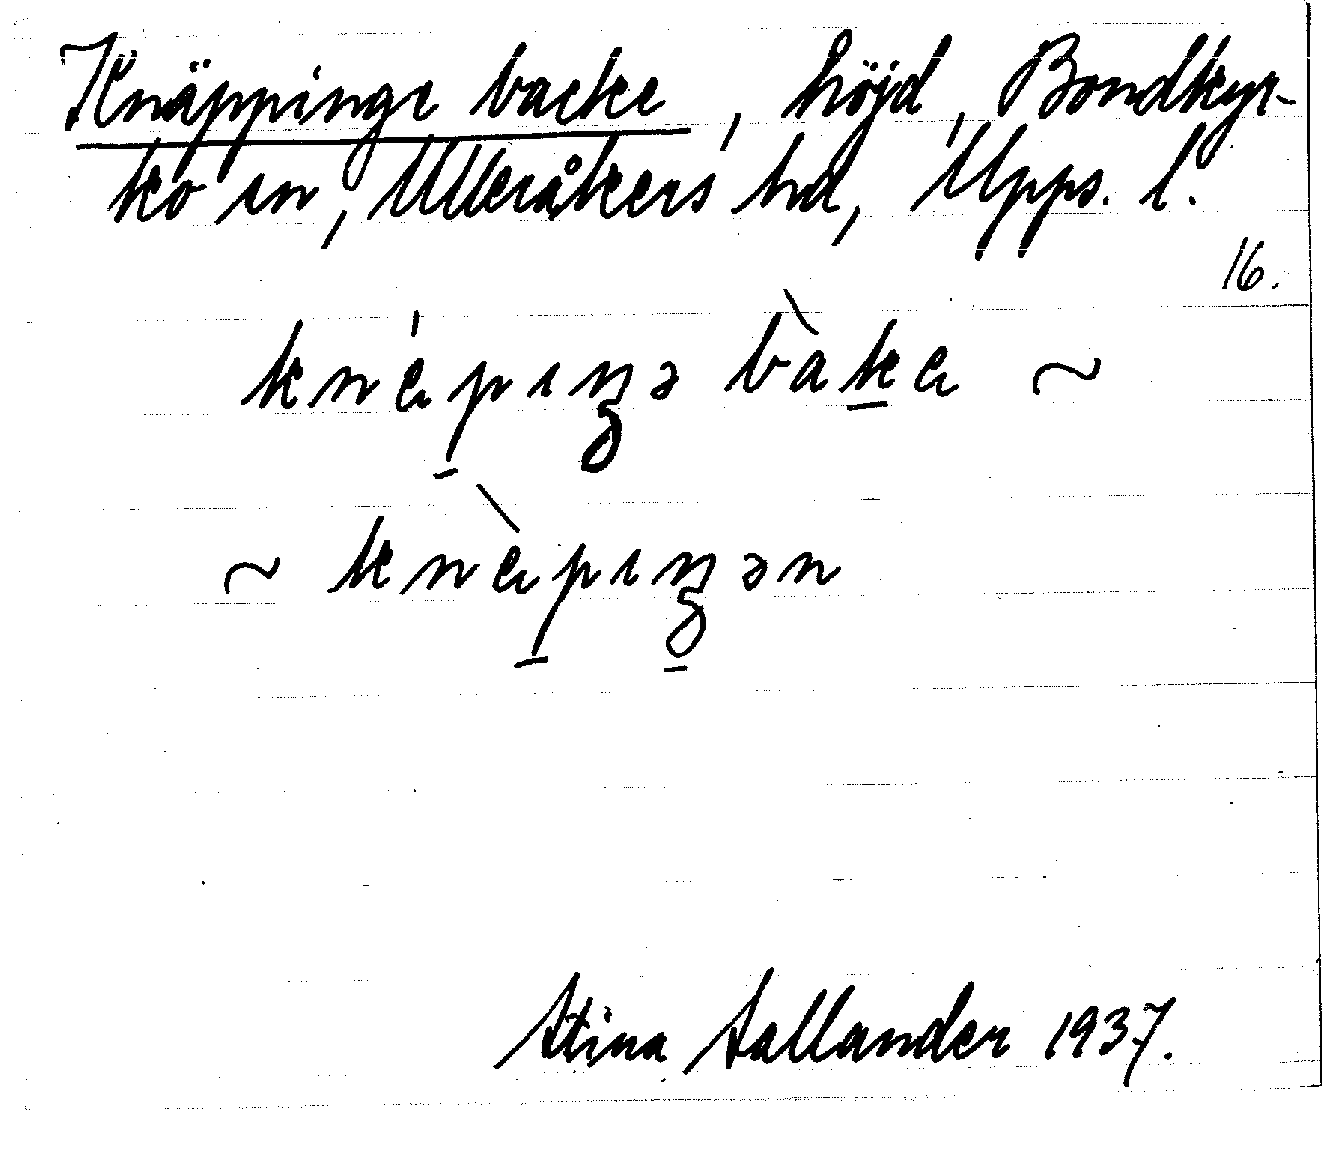 Knäppinge backe, höjd, Bondkyr-
ko sn, Ulleråkers hd, Upps. l.
16.
knäpıŋə bàka ~
~ knäpıŋən
Stina Sallander 1937.